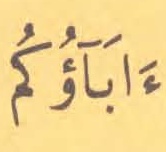 ءَابَآؤُكُمْ